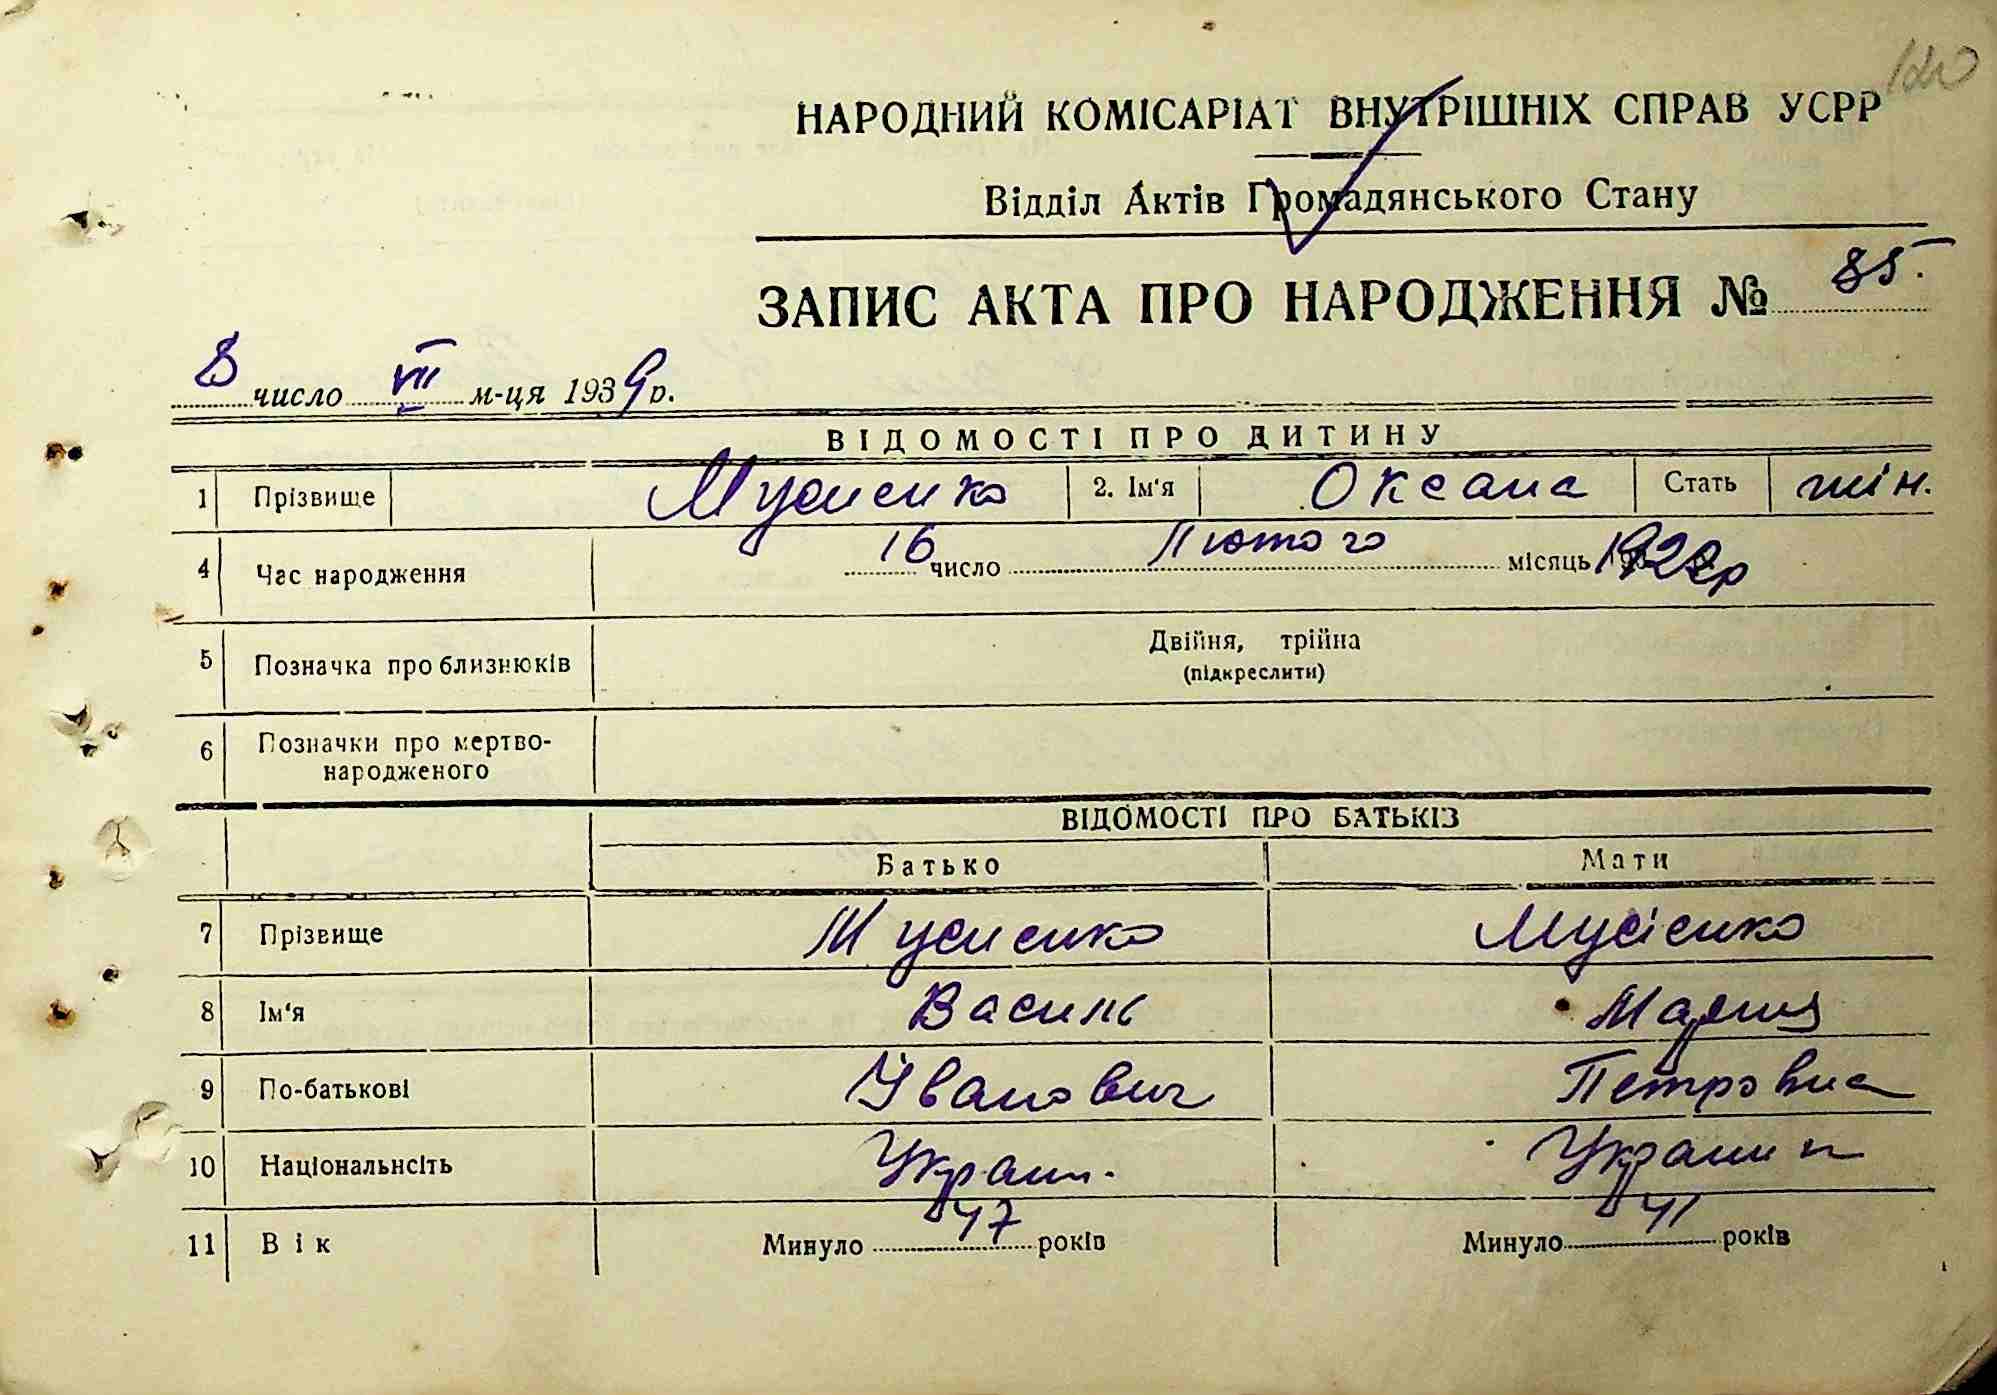 120
НАРОДНИЙ КОМІСАРІАТ ВНУТРІШНІХ СПРАВ УСРР
Відділ Актів Громадянського Стану
ЗАПИС АКТА ПРО НАРОДЖЕННЯ № 85.
8 число VII м-ця 1939 р.
ВІДОМОСТІ ПРО ДИТИНУ
1 Прізвище Мусиенко 2. Ім'я Оксана Стать жін.
4 Час народження 16 число Лютого місяць 1922р
5 Позначка про близнюків Двійня, трійна
(підкреслити)
6 Позначки про мертво-
народженого
ВІДОМОСТІ ПРО БАТЬКІВ
Батько Мати
7 Прізвище Мусиенко Мусієнко
8 Ім'я Василь Мария
9 По-батькові Іванович Петровна
10 Національність Украин. Украинк
11 Вік Минуло 47 років Минуло 41 років